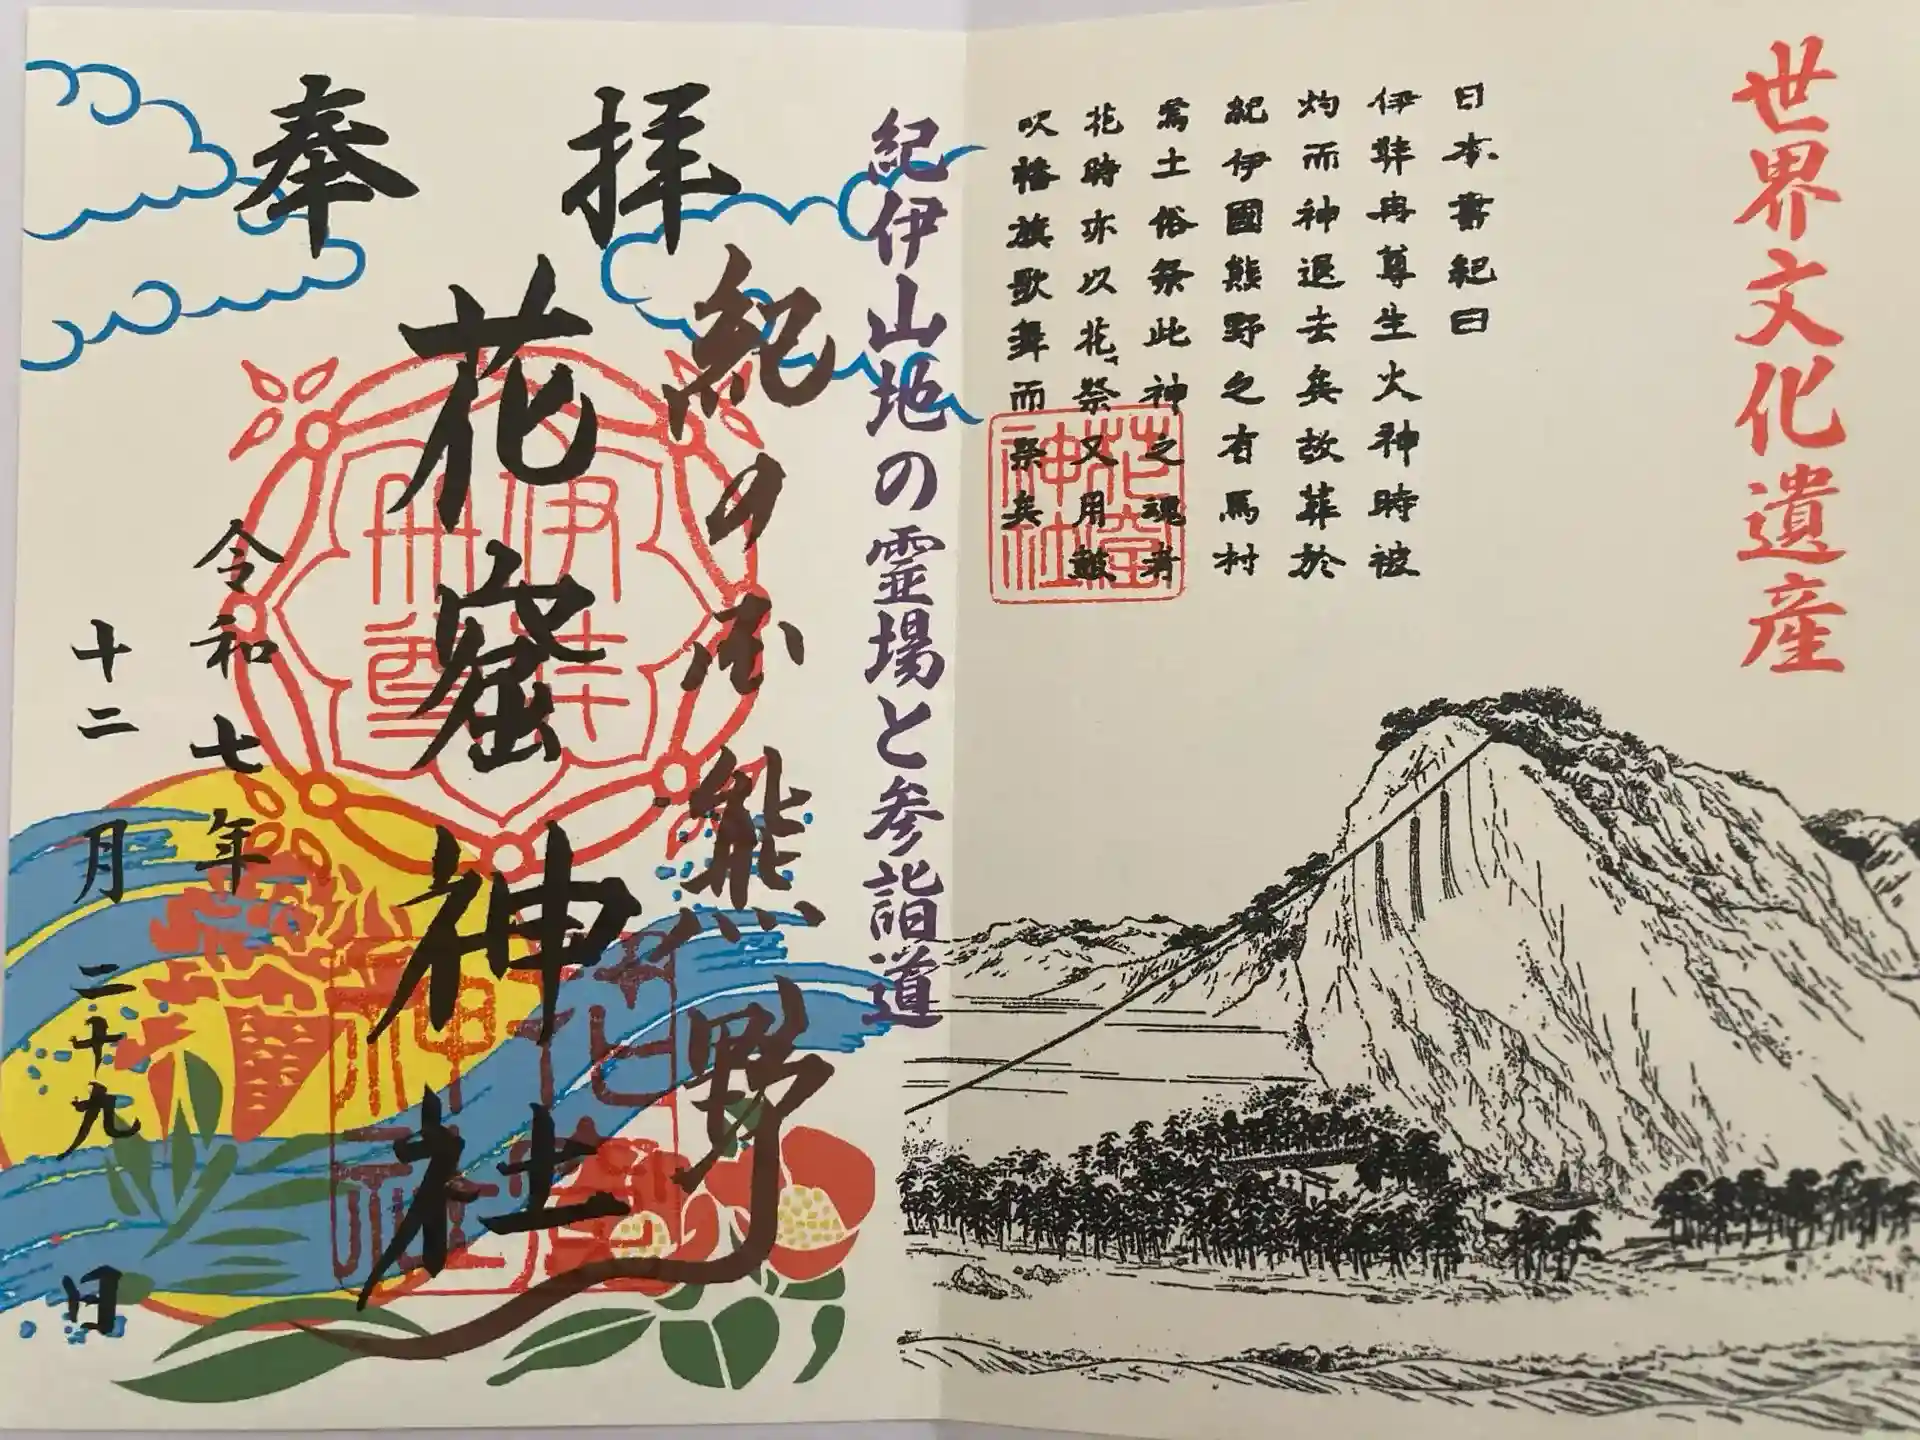 世界文化遺産
日本書紀曰
伊弉冉尊生火神時被
灼而神退去矣故葬於
紀伊國熊野之有馬村
焉土俗祭此神之魂者
花時亦以花祭又用皷
吹幡旗歌舞而祭矣
花窟
神社
紀伊山地の霊場と参詣道
奉拝
紀の国熊野
花窟神社
伊弉
冊尊
花窟
神社
令和七年
十二月二十九日